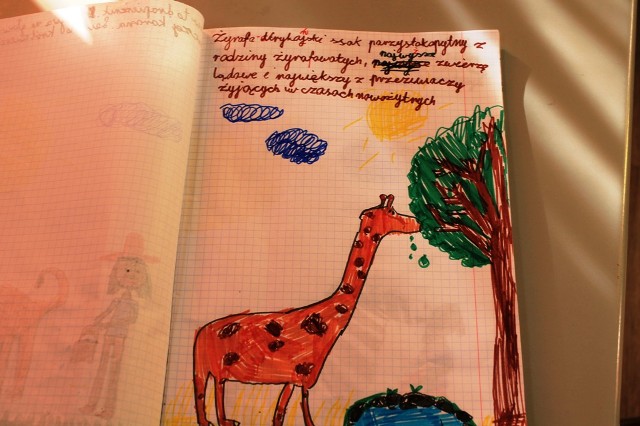 Żyrafa-Afrykański ssak parzystokopytny z
najwyższe
rodziny żyrafowatych, zwierzę
lądowe i największy z przeżuwaczy
żyjących w czasach nowożytnych